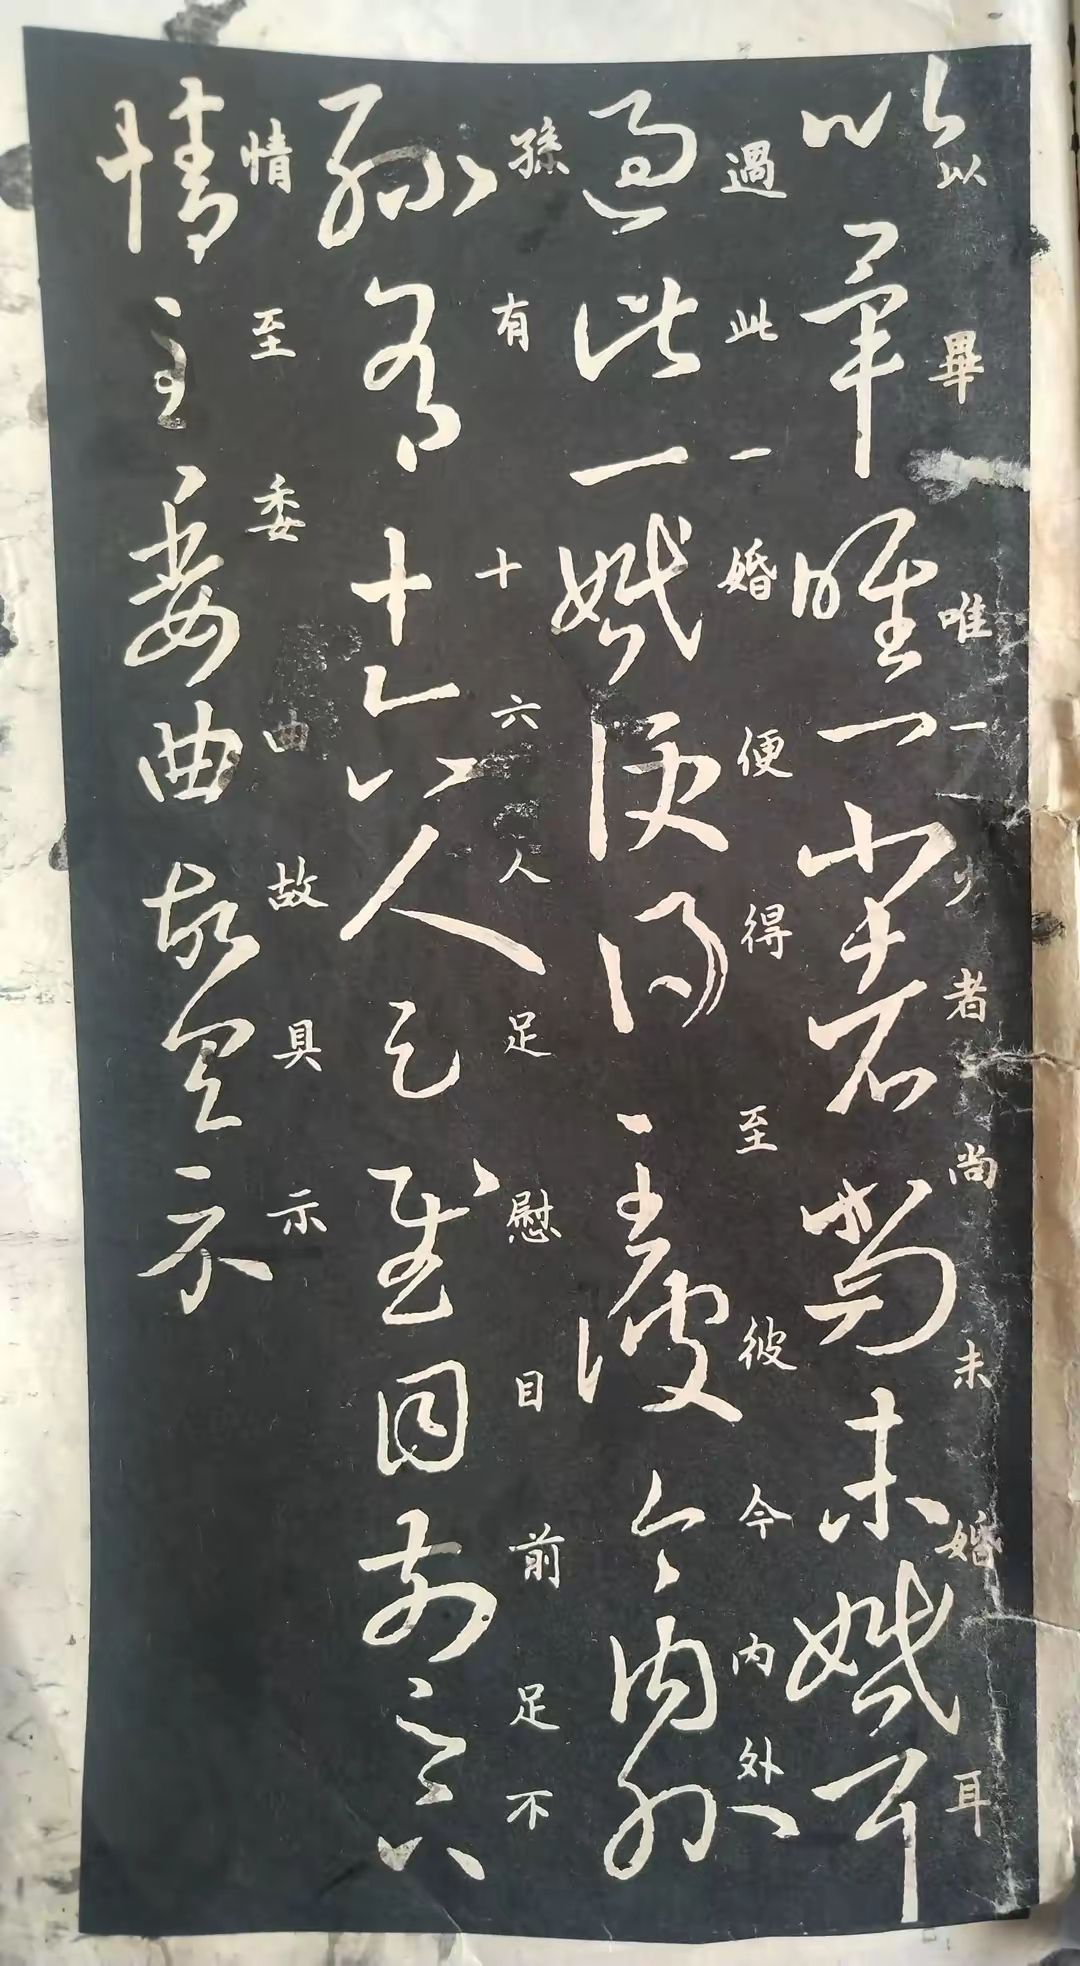 以畢唯一少者尚未婚耳
以畢唯一小者尚未婚耳
過此一婚便得至彼今内外
過此一婚便得至彼今内外
孫有十六人足慰目前足不
孫有十六人足慰目前足下
情至委曲故具示
情至委曲故具示